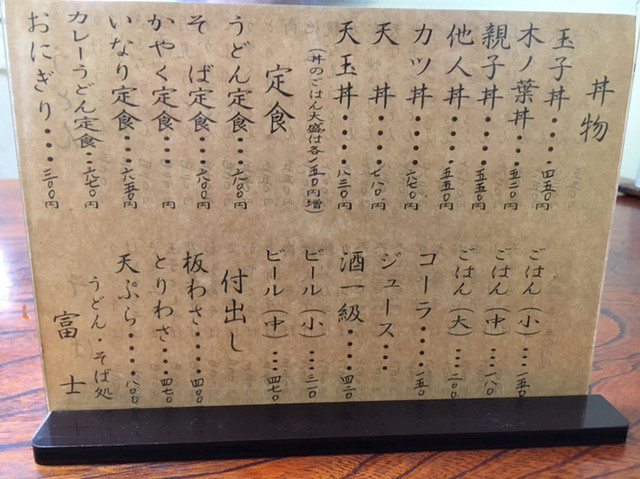 丼物
玉子丼・・・・四五〇円
木ノ葉丼・・・五二〇円
親子丼・・・・五五〇円
他人丼・・・・五五〇円
カツ丼・・・・六七〇円
天丼・・・・七八〇円
天玉丼・・・・八三〇円
(丼のごはん大盛は各一五〇円増)
定食
うどん定食・・・六〇〇円
そば定食・・・六〇〇円
かやく定食・・・円
いなり定食・・・六五〇円
カレーうどん定食・・六七〇円
おにぎり・・・三〇〇円
ごはん(小)・・・一五〇
ごはん(中)・・・一八〇
ごはん(大)・・・二〇〇
コーラ・・・・一五〇
ジュース・・・
酒一級・・・・四二〇
ビール(小)・・・三一〇
ビール(中)・・・四七〇
付出し
板わさ・・・・四〇〇
とりわさ・・・・四七〇
天ぷら・・・・八〇〇
うどん・そば処
富士